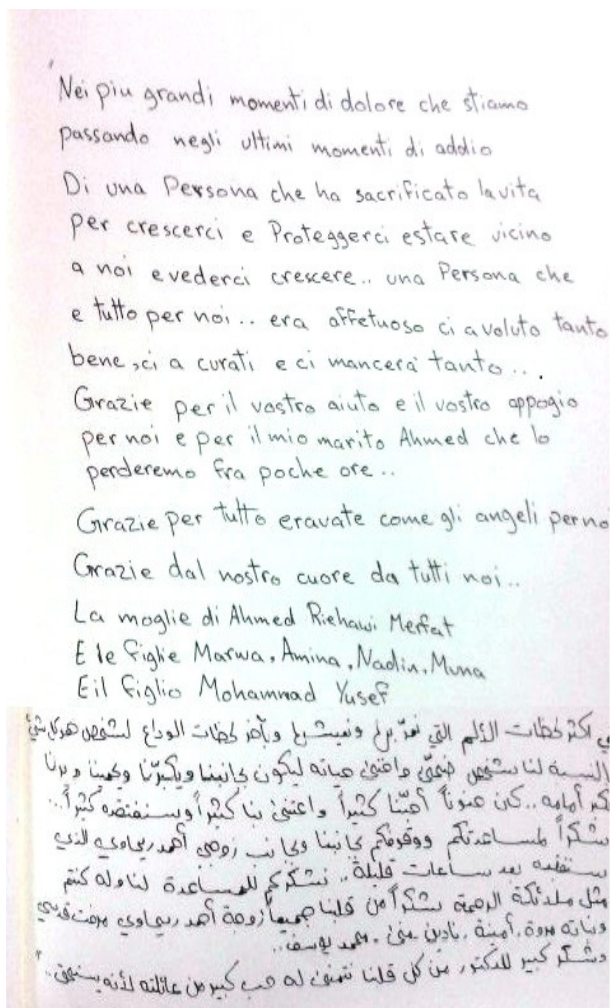 Nei piu grandi momenti di dolore che stiamo
passando negli ultimi momenti di addio
Di una Persona che ha sacrificato la vita
per crescerci e Proteggerci estare vicino
a noi e vederci crescere.. una Persona che
e tutto per noi.. era affetuoso ci a voluto tanto
bene, ci a curati e ci mancerà tanto...
Grazie per il vostro aiuto e il vostro appogio
per noi e per il mio marito Ahmed che lo
perderemo fra poche ore..
Grazie per tutto eravate come gli angeli per no
Grazie dal nostro cuore da tutti noi..
La moglie di Ahmed Riehawi Merfat
E le figlie Marwa, Amina, Nadin, Muna
E il figlio Mohammad Yusef
اكثر لحظات الألم التي نمر بها ونعيشها وبآخر لحظات الوداع لشخص هو كل شيء
بالنسبة لنا شخص ضحّى واعتنى حياته ليكون بجانبنا ويكبرنا ويحمينا ويرنا
نكبر أمامه.. كان حنوناً أحبّنا كثيراً واعتنى بنا كثيراً وسنفتقده كثيراً...
شكراً لمساعدتكم ووقوفكم بجانبنا وبجانب زوجي أحمد ريحاوي الذي
سنفقده بعد ساعات قليلة.. نشكركم للمساعدة لنا وله كنتم
مثل ملائكة الرحمة شكراً من قلبنا جميعاً زوجة أحمد ريحاوي مرفت
وبناته مروة، أمينة، نادين، منى، محمد يوسف..
وشكر كبير للدكتور من كل قلبنا نتمنى له حب كبير من عائلته لأنه يستحق..